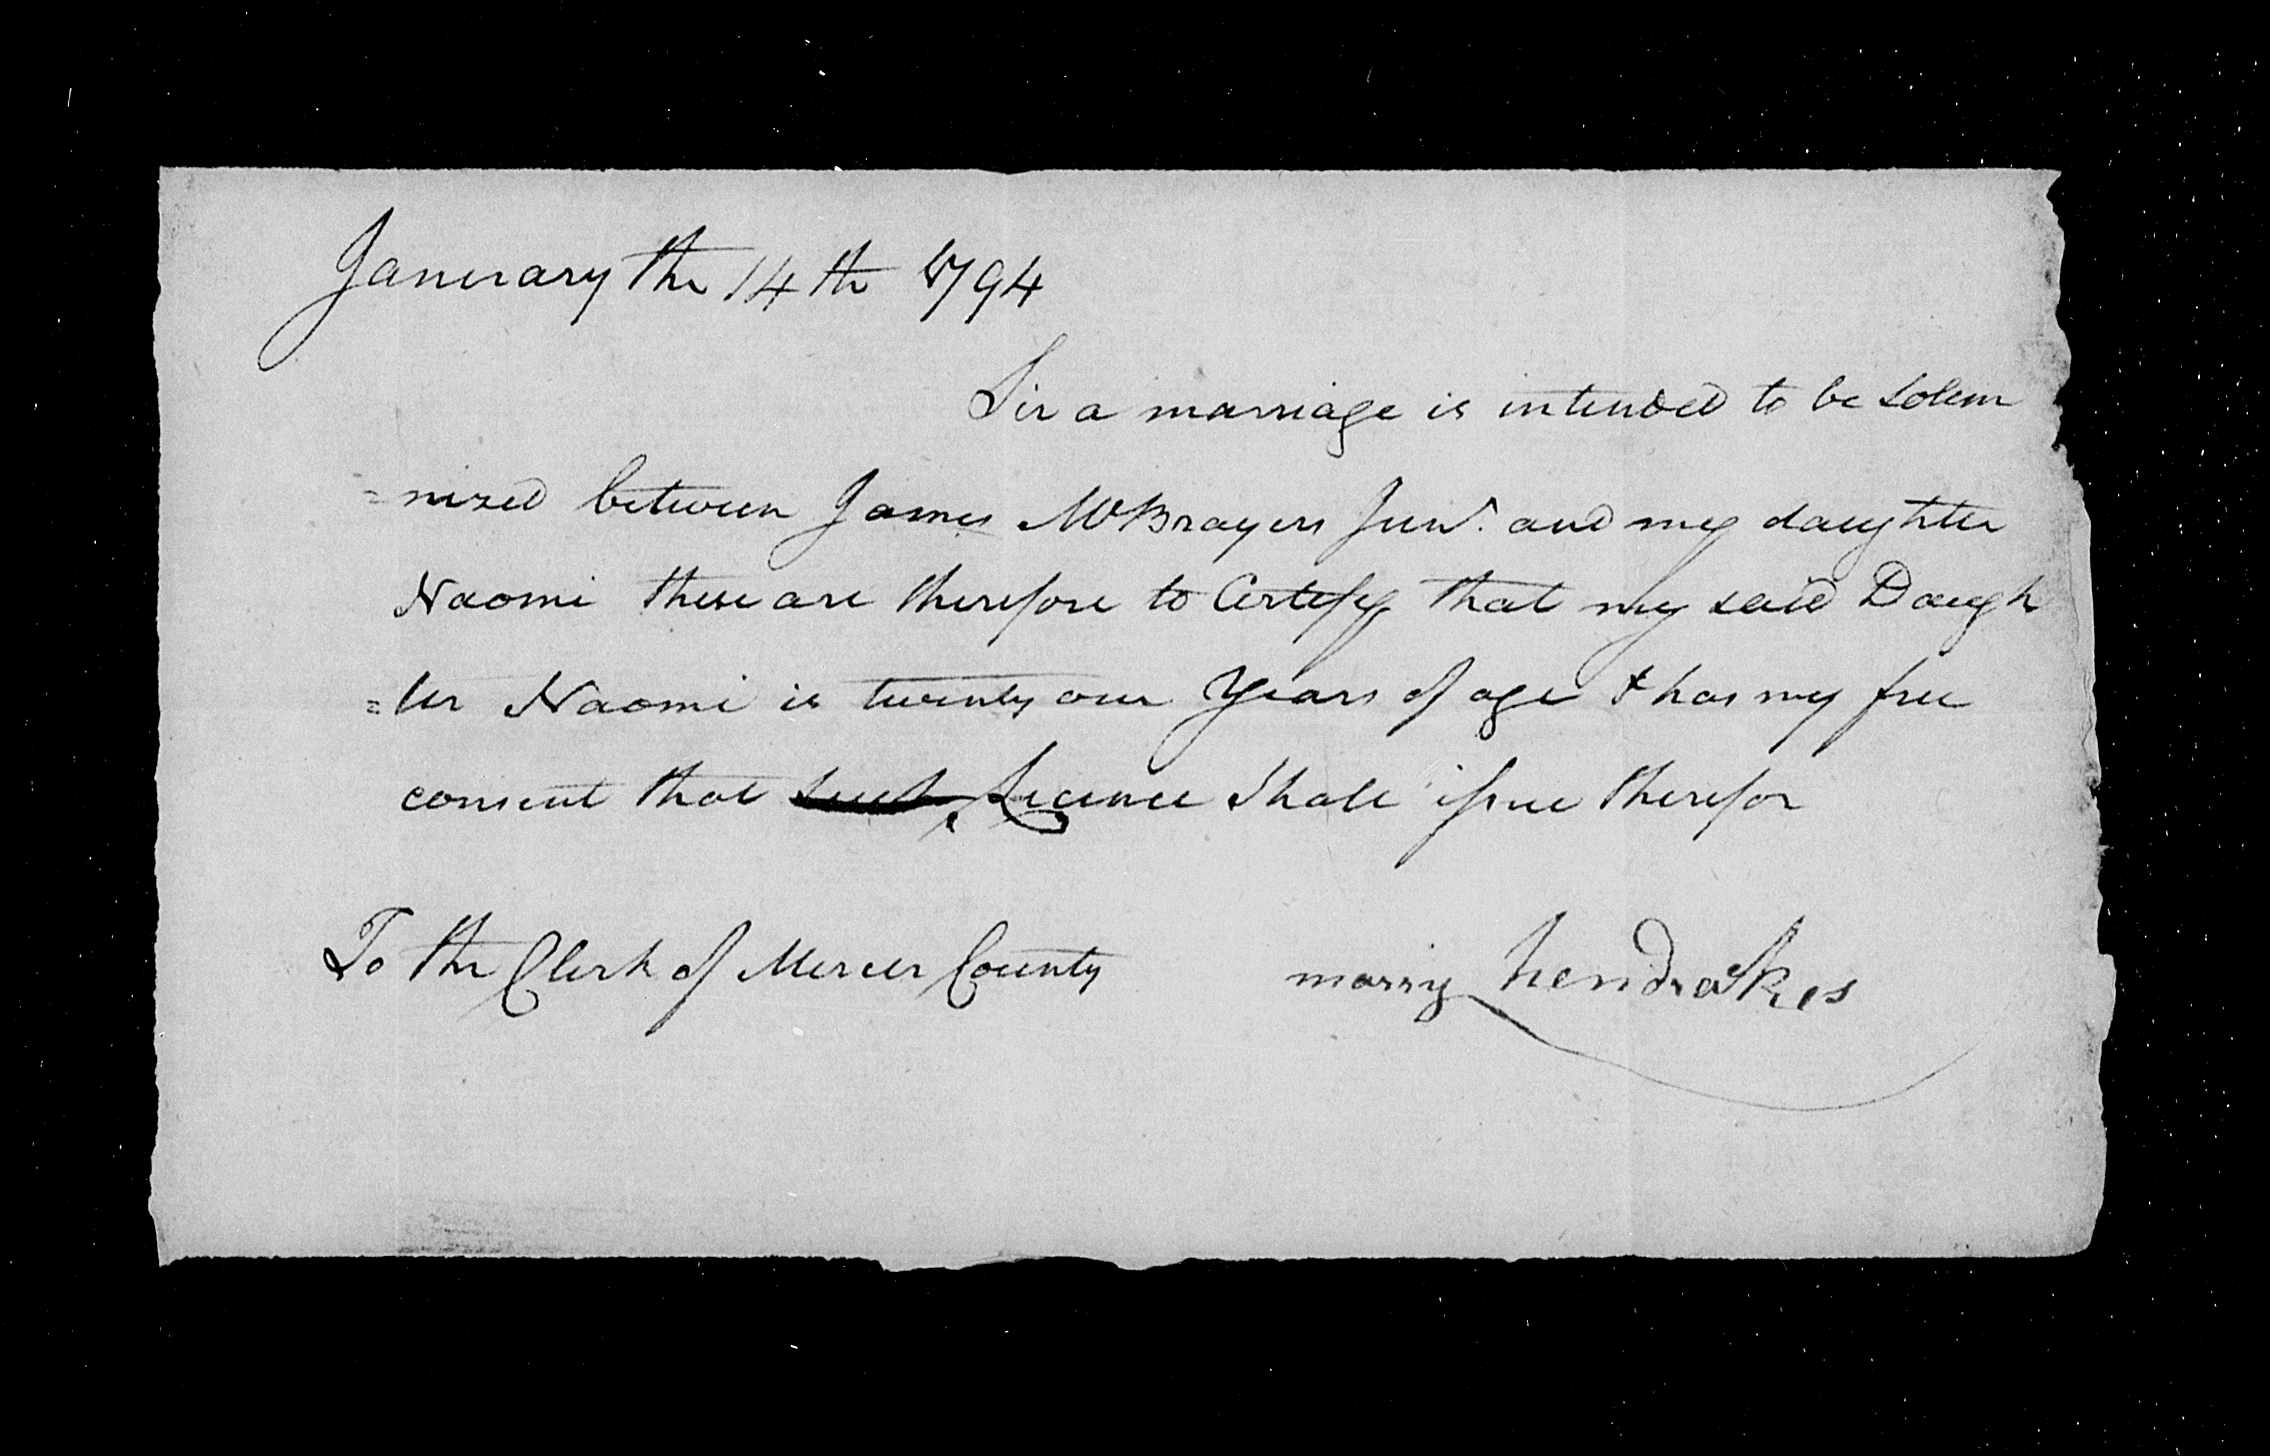 Janerary the 14th 1794
Sir a marriage is intended to be Solem
=nized between James McBrayers Junr. and my daughter
Naomi these are therefore to Certify that my said Daugh
=ter Naomi is twenty one Years of age & has my free
consent that such Licence Shall issue therefor
To the Clerk of Mercer County
marry hendrakes